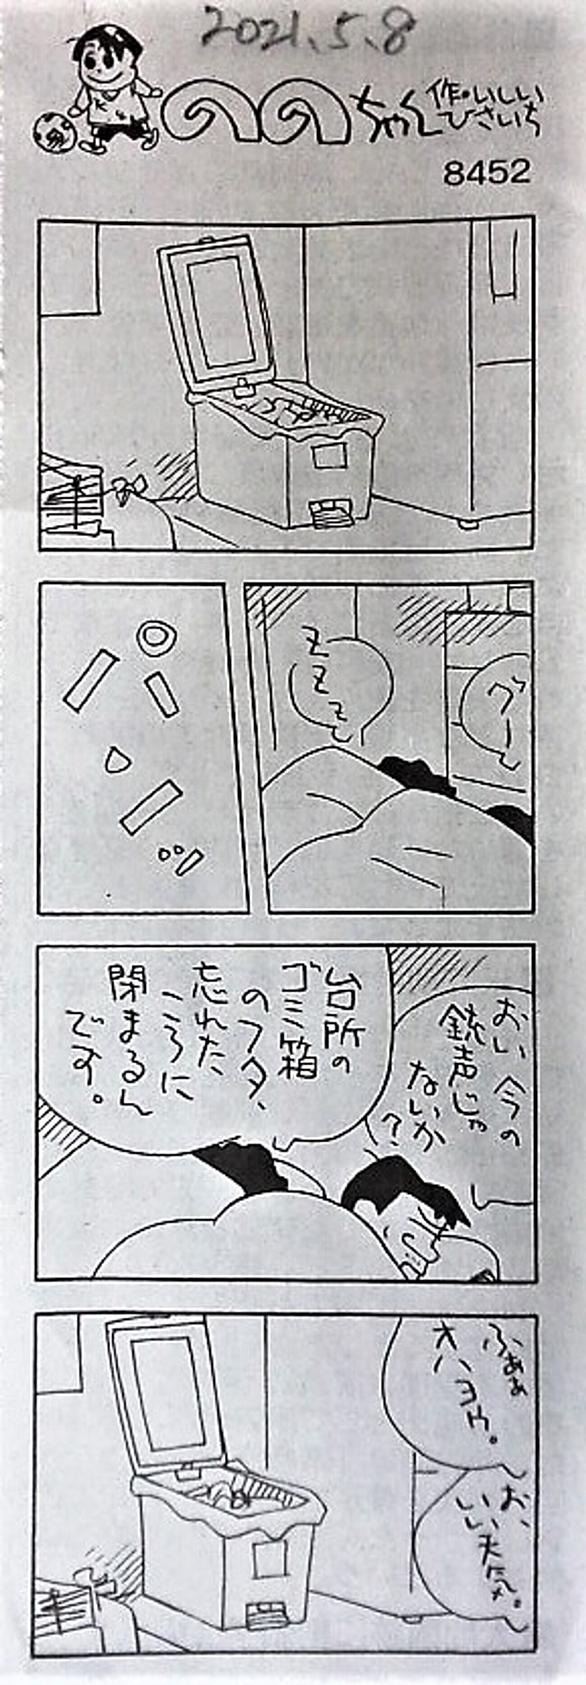 2021.5.8
ののちゃん
作・いしい
ひさいち
8452
グー
ZZZ
パンッ
おい 今の
銃声じゃ
ないか
？
台所の
ゴミ箱
のフタ、
忘れた
ころに
閉まるん
です。
ふぁぁ
オハヨウ。
お、
いい天気。